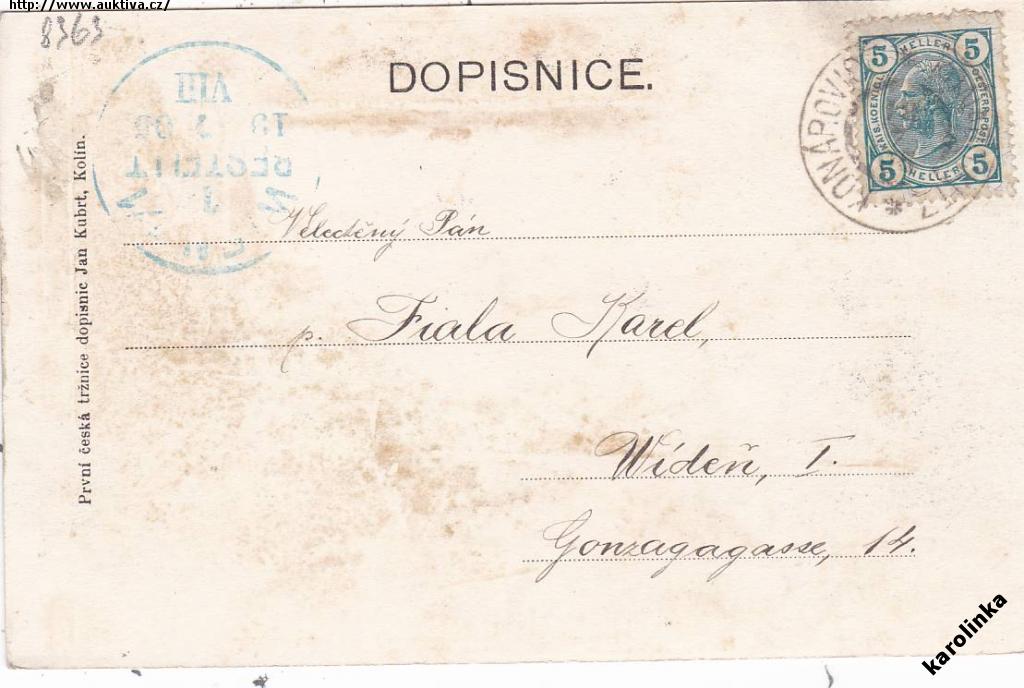 http://www.auktiva.cz/
8363
DOPISNICE.
5 HELLER 5
KAIS. KOENIGL. OESTERR. POST
5 HELLER 5
WIEN
1
BESTELLT
VIII
První česká tržnice dopisnic Jan Kubrt, Kolín.
Velectěný Pán
p. Fiala Karel,
Wídeň, I.
Gonzagagasse, 14.
karolinka